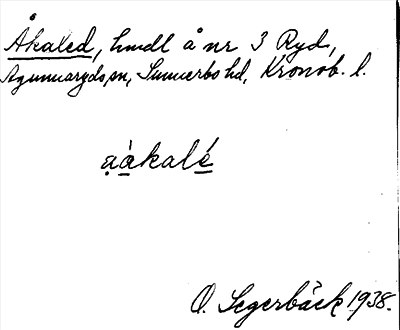 Åkaled, hmdl å nr 3 Ryd,
Agunnaryds sn, Sunnerbo hd, Kronob. l.
ạàkalé
O. Segerbäck 1938.